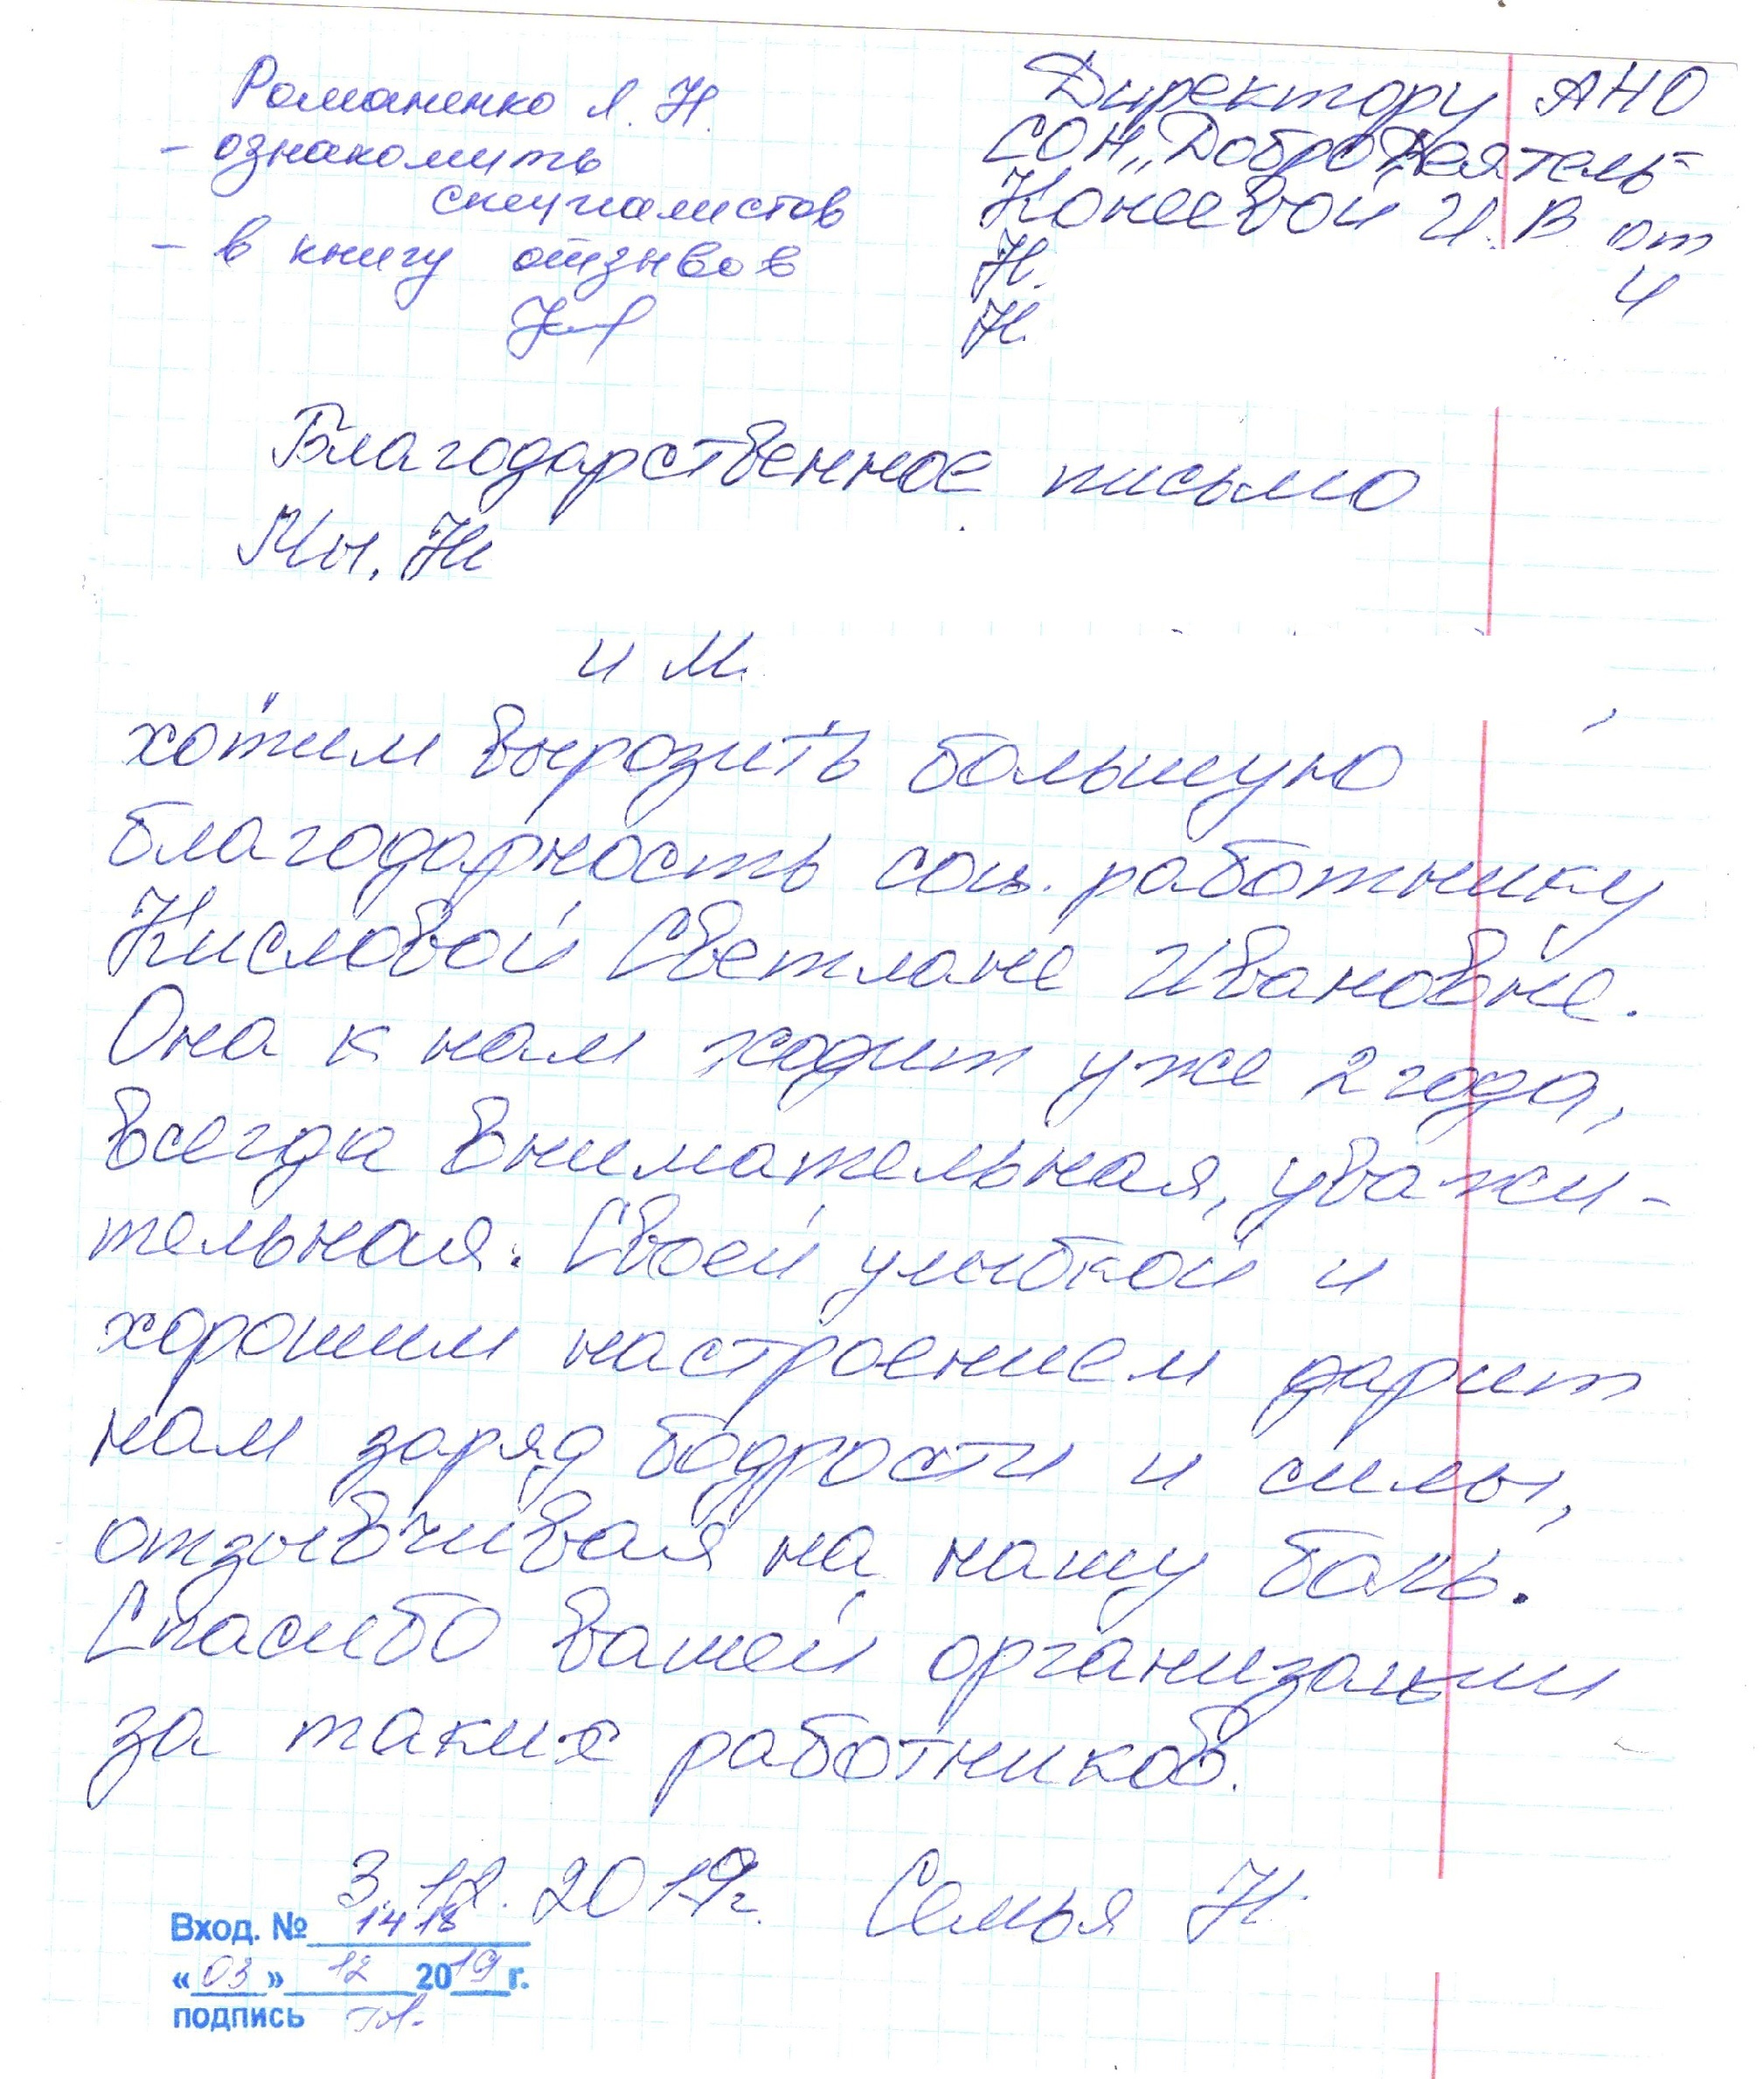 Романенко Л. Н.
- ознакомить
специалистов
- в книгу отзывов
Директору АНО
СОН „ДоброДеятель"
Конеевой И. В от
Н. и
Н.
Благодарственное письмо
Мы, Н
и М.
хотим выразить большую
благодарность соц. работнику
Кисловой Светлане Ивановне.
Она к нам ходит уже 2 года,
всегда внимательная, уважи-
тельная. Своей улыбкой и
хорошим настроением дарит
нам заряд бодрости и силы,
отзывчивая на нашу боль.
Спасибо вашей организации
за таких работников.
3. 12. 2019г. Семья Н.
Вход. № 1418
«03» 12 2019 г.
подпись